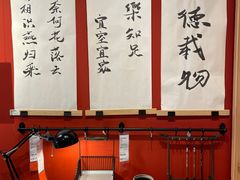 德載物
樂知足
宜室宜家
奈何花落去
相识燕归来